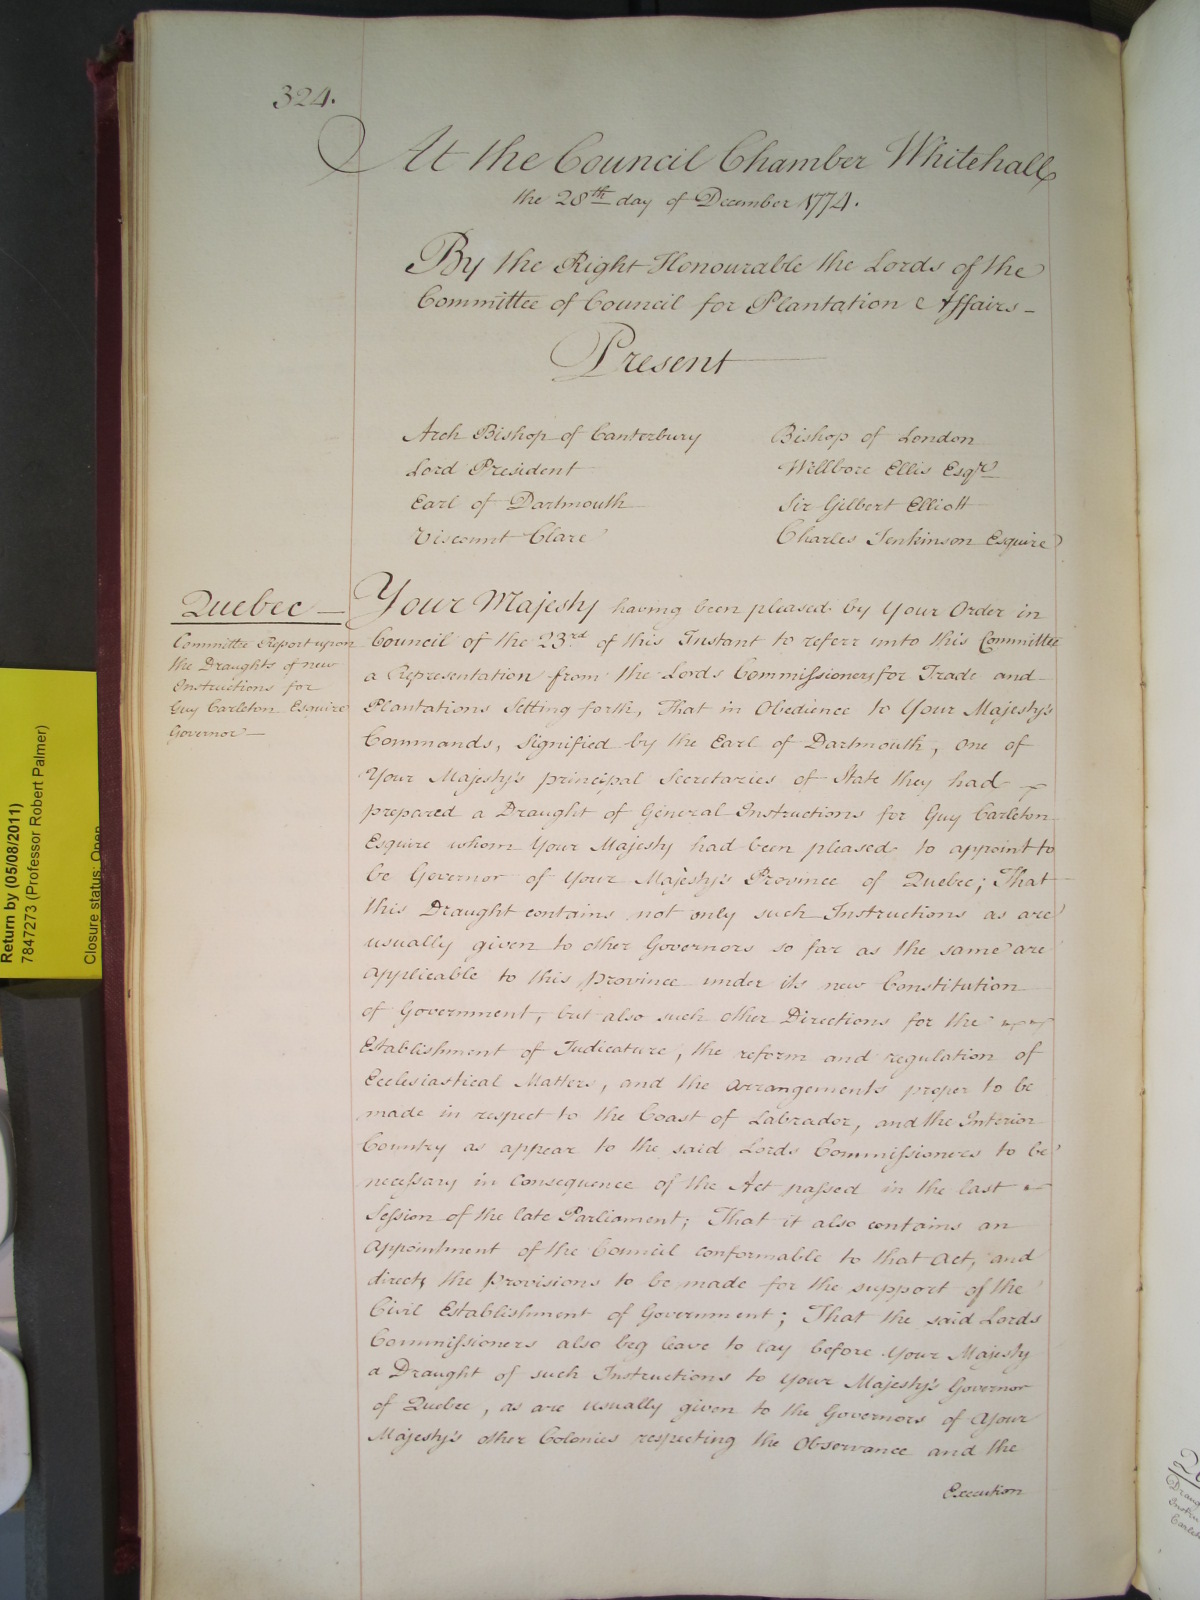 324.
At the Council Chamber Whitehall
the 28th day of December 1774.
By the Right Honourable the Lords of the
Committee of Council for Plantation Affairs -
Present
Arch Bishop of Canterbury
Lord President
Earl of Dartmouth
Viscount Clare
Bishop of London
Wellbore Ellis Esqr.
Sir Gilbert Elliott
Charles Jenkinson Esquire
Quebec —
Committee Report upon
the Draughts of new
Instructions for
Guy Carleton Esquire
Governor —
Your Majesty having been pleased by Your Order in
Council of the 23rd of this Instant to referr unto this Committee
a Representation from the Lords Commissioners for Trade and
Plantations Setting forth, That in Obedience to Your Majesty's
Commands, signified by the Earl of Dartmouth, one of
Your Majesty's principal Secretaries of State they had
prepared a Draught of General Instructions for Guy Carleton
Esquire whom Your Majesty had been pleased to appoint to
be Governor of Your Majesty's Province of Quebec; That
this Draught contains not only such Instructions as are
usually given to other Governors so far as the same are
applicable to this Province under its new Constitution
of Government, but also such other Directions for the
Establishment of Judicature, the reform and regulation of
Ecclesiastical Matters, and the arrangements proper to be
made in respect to the Coast of Labrador, and the Interior
Country as appear to the said Lords Commissioners to be
necessary in Consequence of the Act passed in the last
Session of the late Parliament; That it also contains an
Appointment of the Council conformable to that Act, and
directs the Provisions to be made for the support of the
Civil Establishment of Government; That the said Lords
Commissioners also beg leave to lay before Your Majesty
a Draught of such Instructions to Your Majesty's Governor
of Quebec, as are usually given to the Governors of Your
Majesty's other Colonies respecting the Observance and the
Execution
Return by (05/08/2011)
7847273 (Professor Robert Palmer)
Closure status: Open